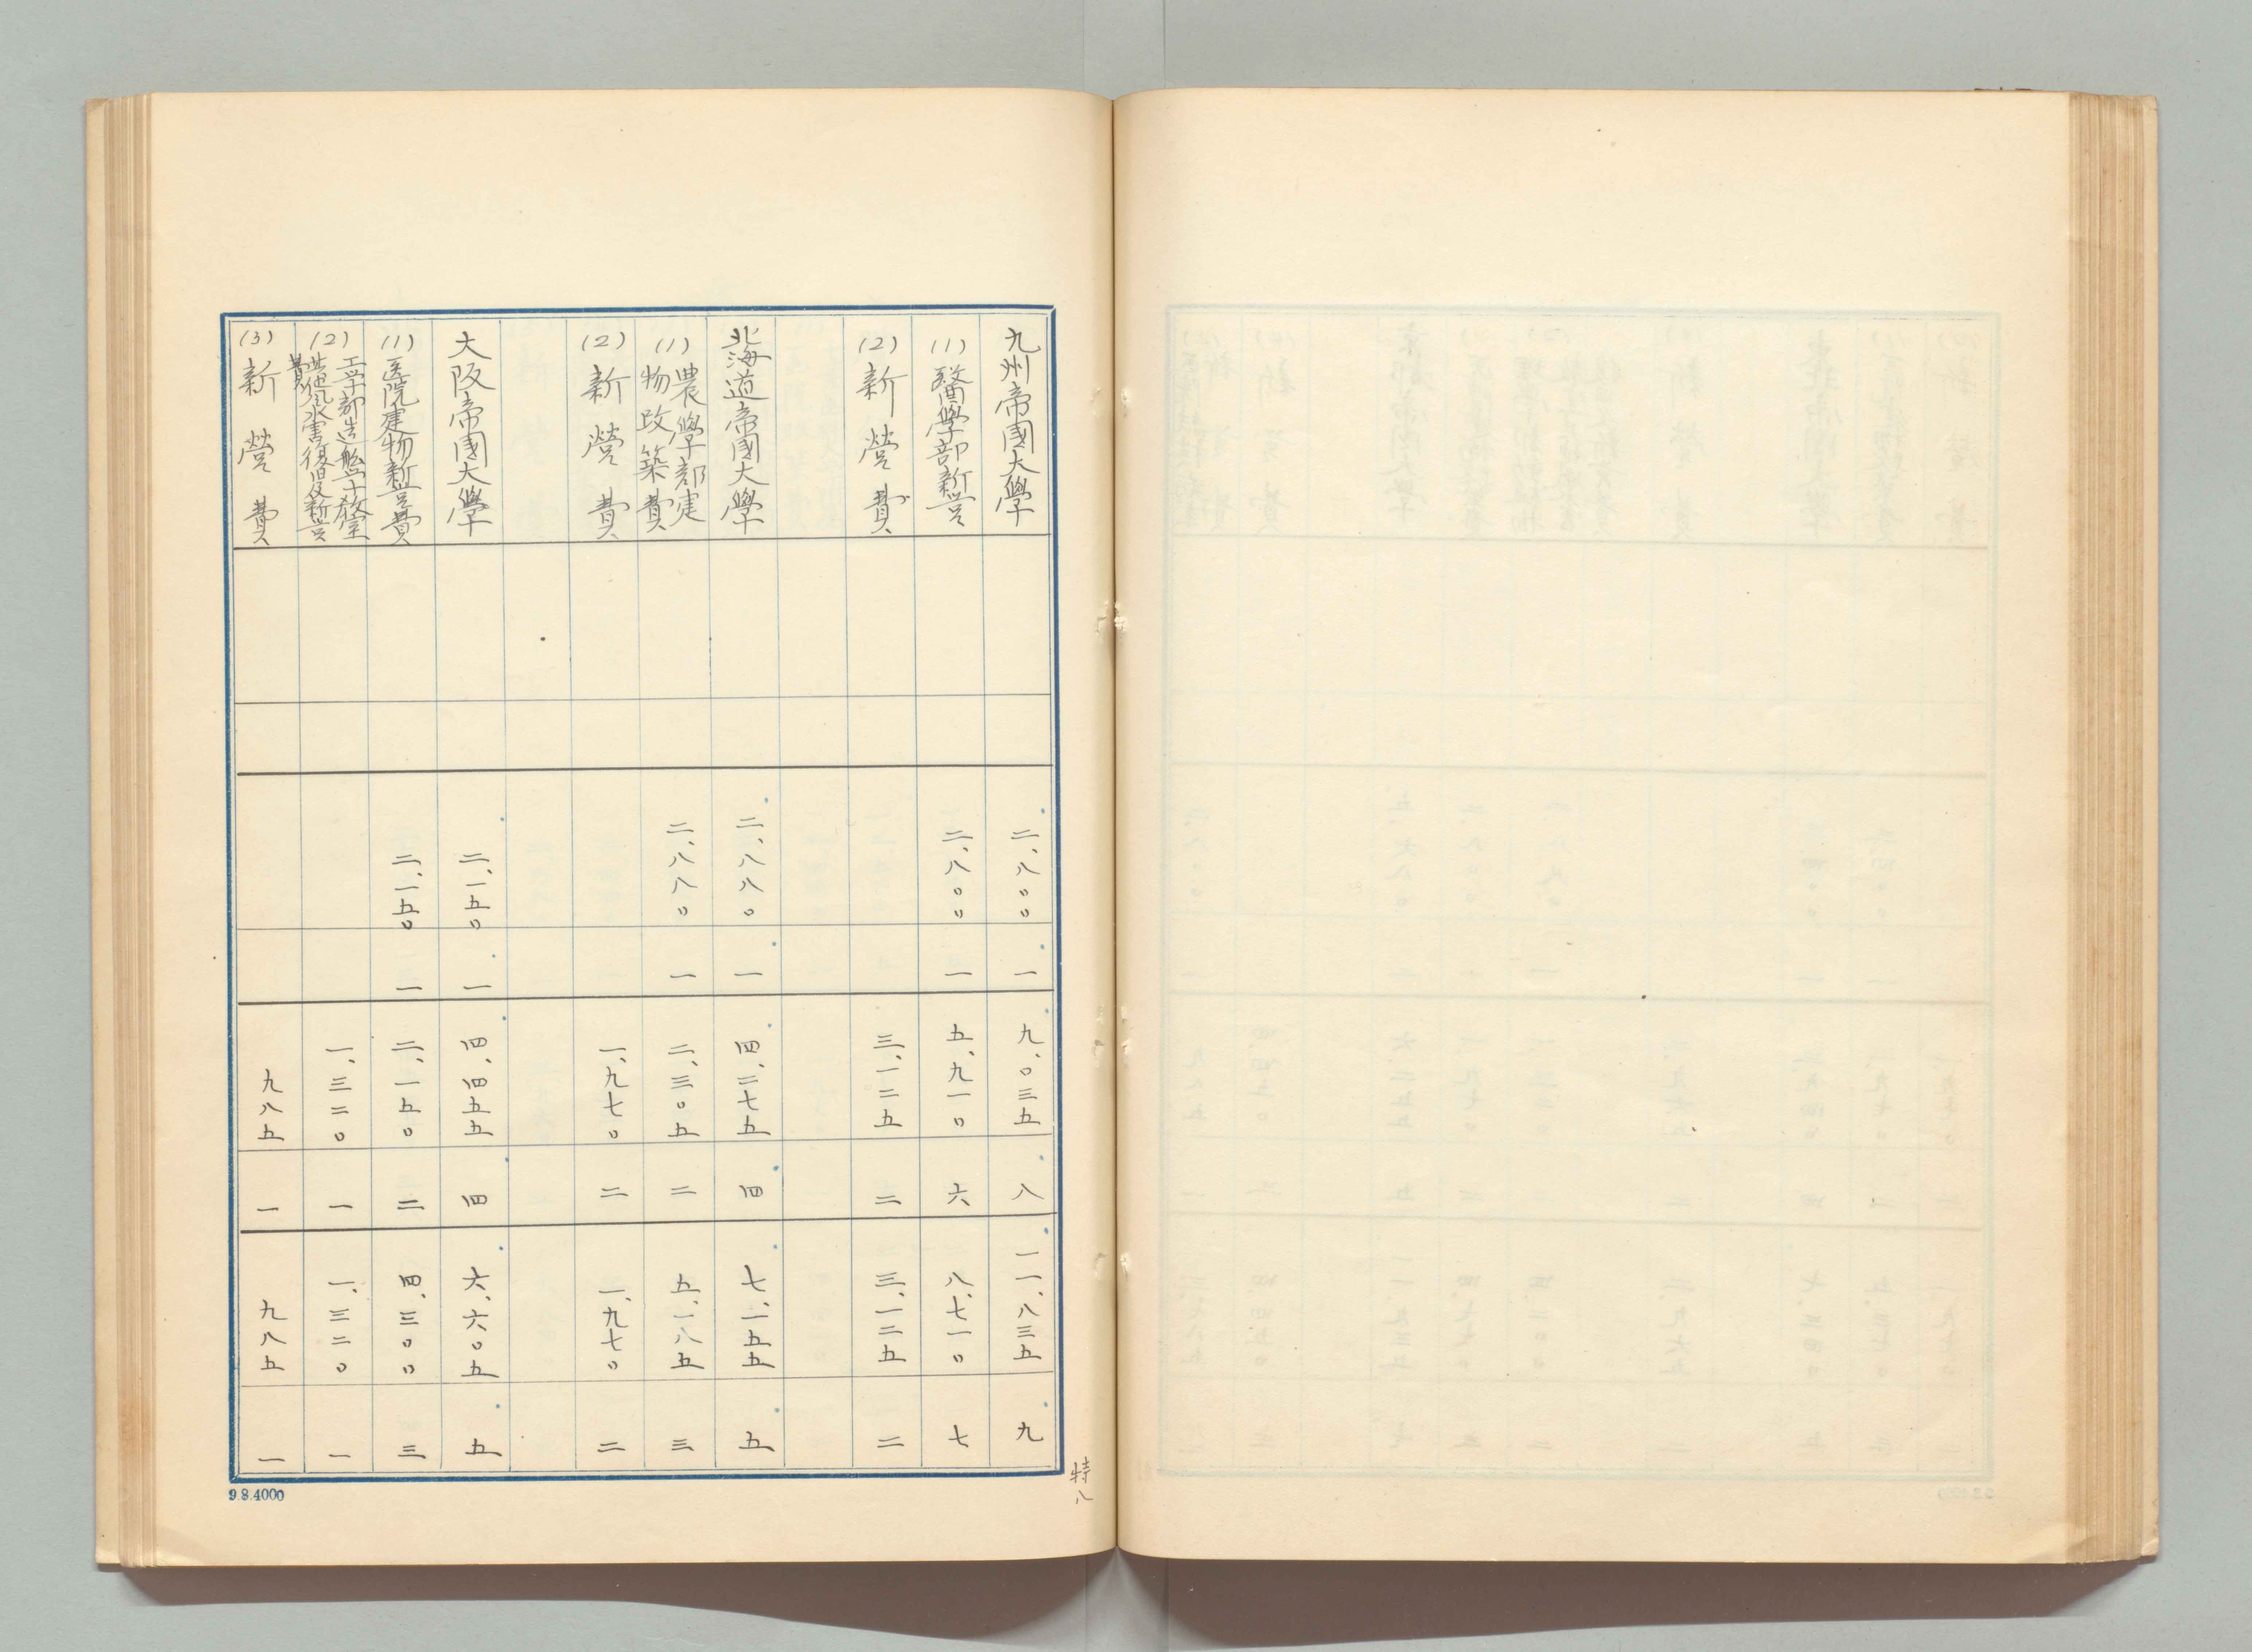 九州帝國大學 二、八〇〇 一 九、〇三五 八 一一、八三五 九
(1) 醫學部新営 二、八〇〇 一 五、九一〇 六 八、七一〇 七
(2) 新營費 三、一二五 二 三、一二五 二
北海道帝國大學 二、八八〇 一 四、二七五 四 七、一五五 五
(1) 農學部建
物改築費 二、八八〇 一 二、三〇五 二 五、一八五 三
(2) 新營費 一、九七〇 二 一、九七〇 二
大阪帝國大學 二、一五〇 一 四、四五五 四 六、六〇五 五
(1) 医院建物新営費 二、一五〇 一 二、一五〇 二 四、三〇〇 三
(2) 工学部造船学教室
其他風水害復旧及新営
費 一、三二〇 一 一、三二〇 一
(3) 新營費 九八五 一 九八五 一
特八
9.8.4000